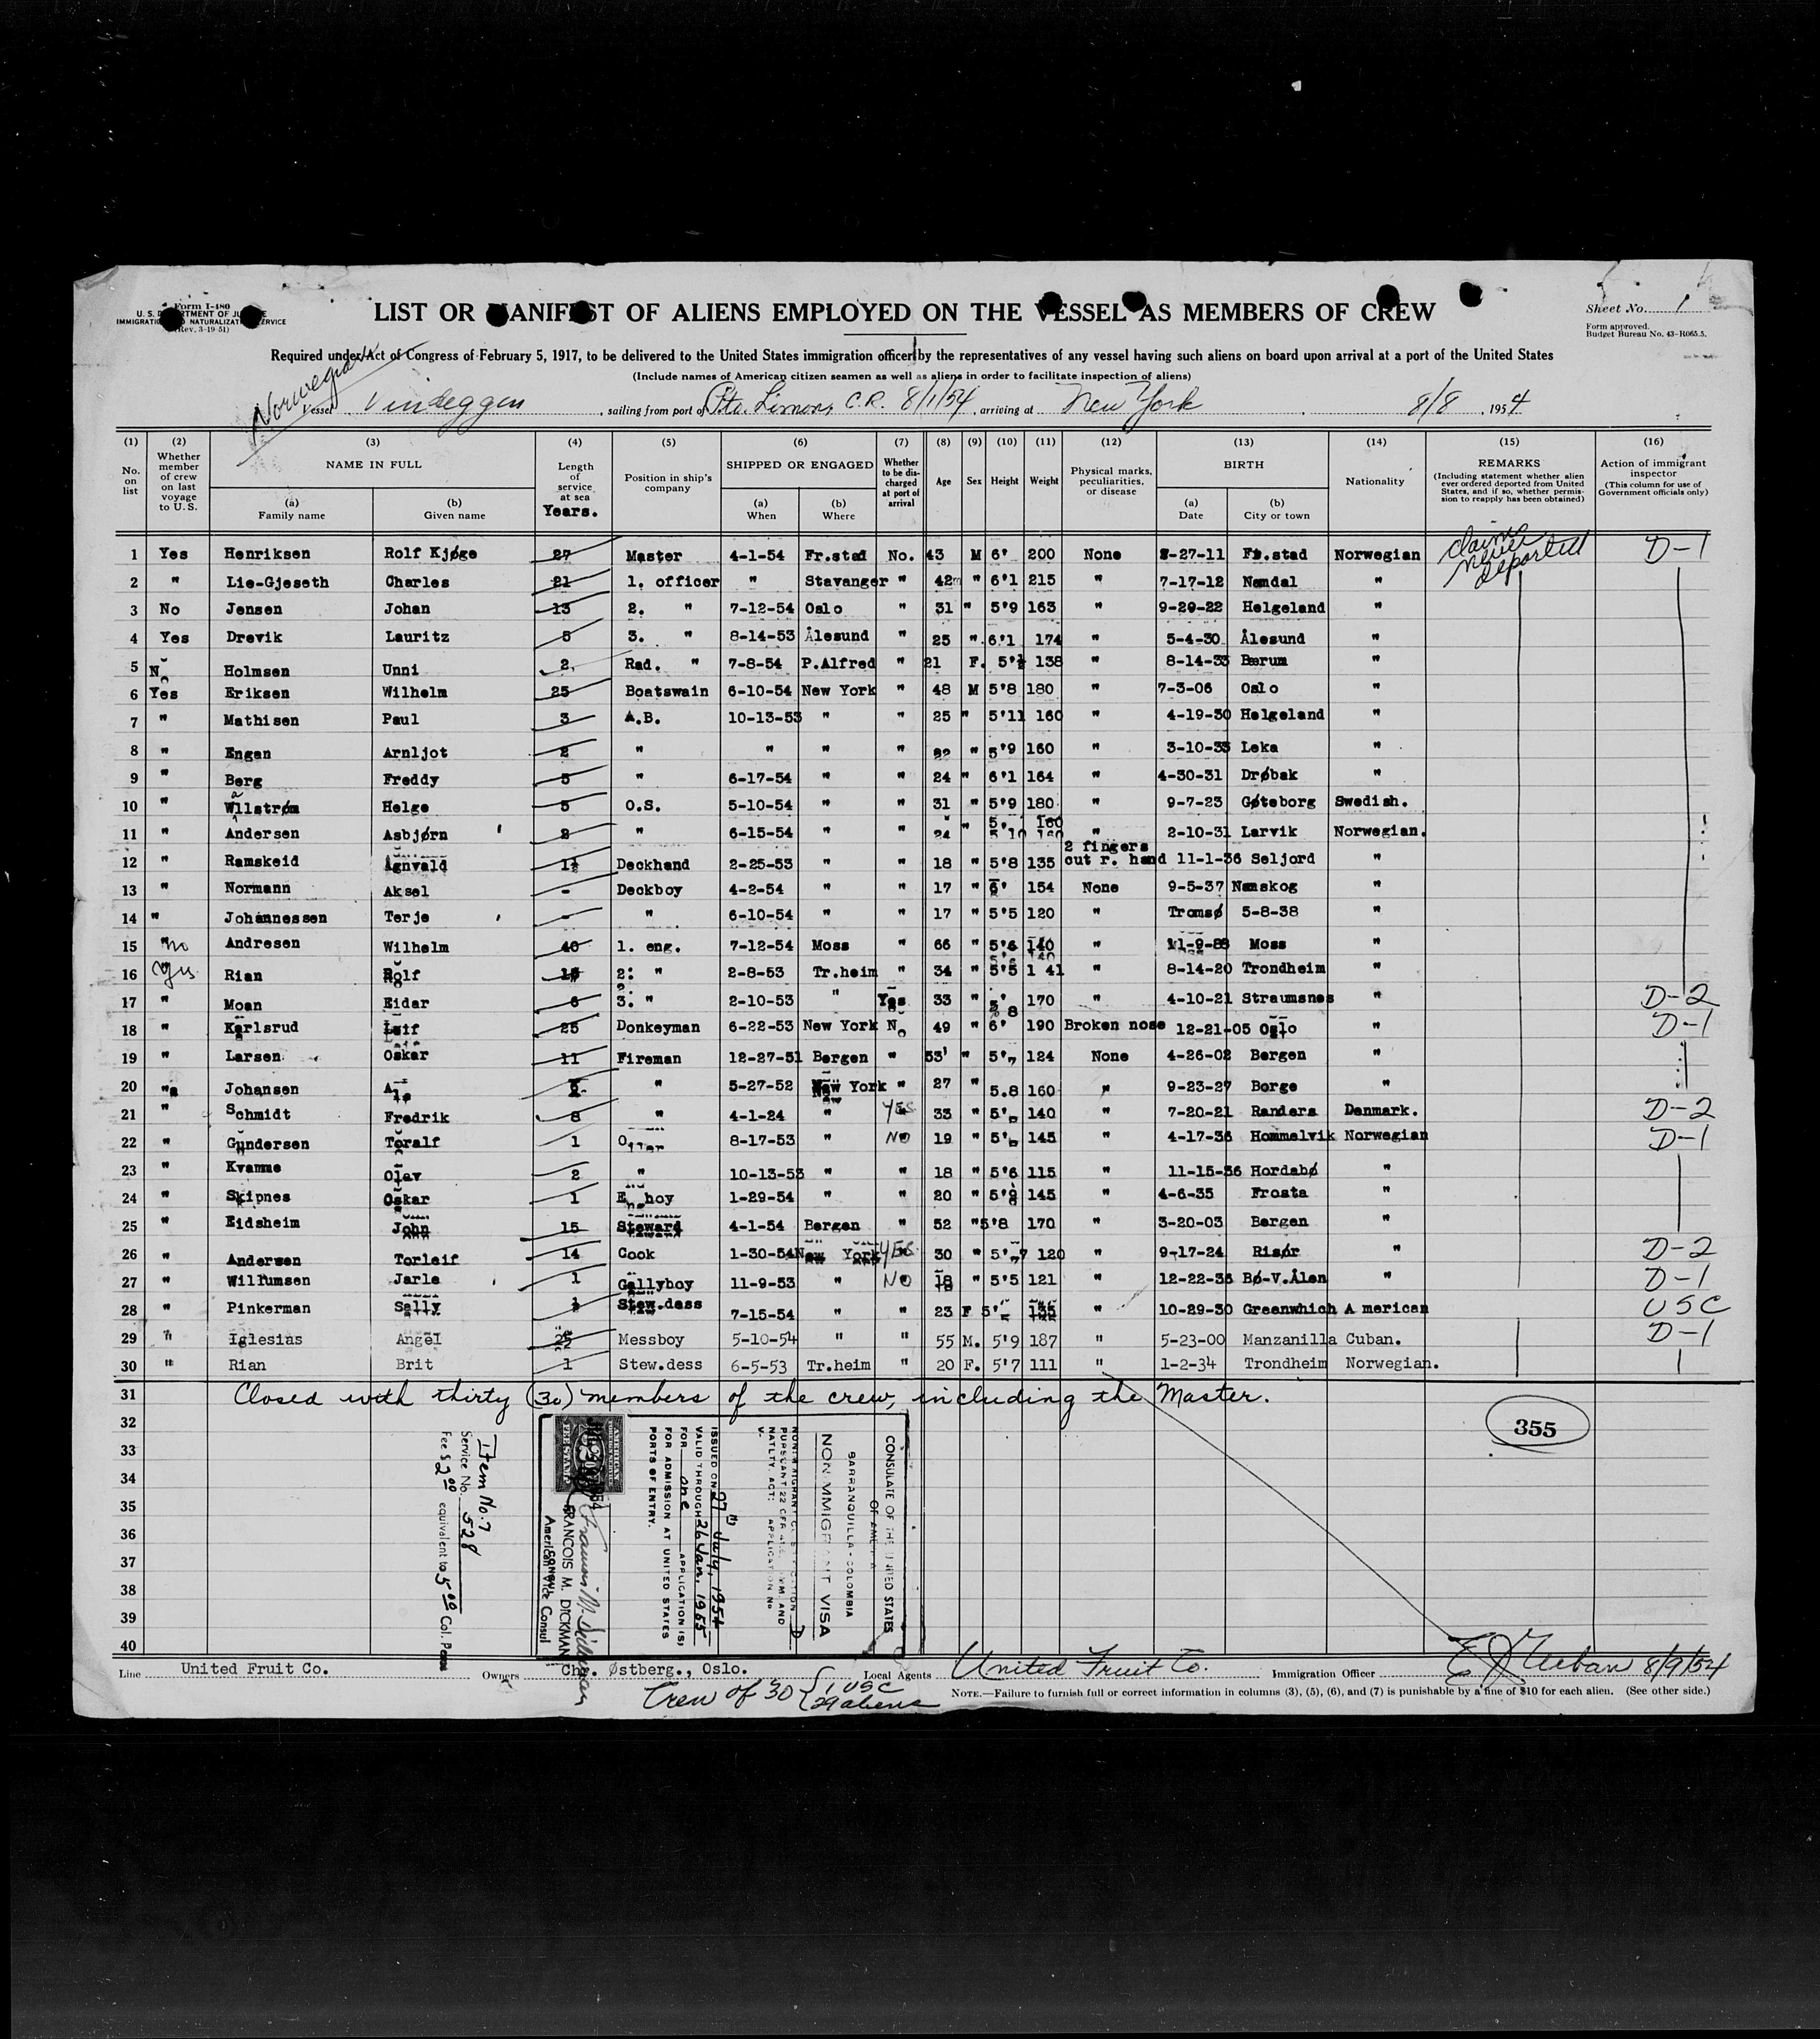 Form I-480
U. S. DEPARTMENT OF JUSTICE
IMMIGRATION AND NATURALIZATION SERVICE
(Rev. 3-19-51)
LIST OR MANIFEST OF ALIENS EMPLOYED ON THE VESSEL AS MEMBERS OF CREW
Sheet No. 1
Form approved.
Budget Bureau No. 43-R065.5.
Required under Act of Congress of February 5, 1917, to be delivered to the United States immigration officer by the representatives of any vessel having such aliens on board upon arrival at a port of the United States
(Include names of American citizen seamen as well as aliens in order to facilitate inspection of aliens)
Norwegian Vessel Vindeggen, sailing from port of Pto. Limon, C.R. 8/1/54, arriving at New York, 8/8, 1954
(1) (2) (3) (4) (5) (6) (7) (8) (9) (10) (11) (12) (13) (14) (15) (16)
No. on list
Whether member of crew on last voyage to U.S.
NAME IN FULL
(a) Family name
(b) Given name
Length of service at sea Years.
Position in ship's company
SHIPPED OR ENGAGED
(a) When
(b) Where
Whether to be discharged at port of arrival
Age Sex Height Weight
Physical marks, peculiarities, or disease
BIRTH
(a) Date
(b) City or town
Nationality
REMARKS
(Including statement whether alien ever ordered deported from United States, and if so, whether permission to reapply has been obtained)
Action of immigrant inspector
(This column for use of Government officials only)
1 Yes Henriksen Rolf Kjøge 27 Master 4-1-54 Fr.stad No. 43 M 6' 200 None -27-11 Fr.stad Norwegian claims never deported D-1
2 " Lie-Gjeseth Charles 21 1. officer " Stavanger " 42 " 6'1 215 " 7-17-12 Namdal "
3 No Jensen Johan 13 2. " 7-12-54 Oslo " 31 " 5'9 163 " 9-29-22 Helgeland "
4 Yes Drevik Lauritz 5 3. " 8-14-53 Ålesund " 25 " 6'1 174 " 5-4-30 Ålesund "
5 No Holmsen Unni 2 Rad. " 7-8-54 P.Alfred " 21 F. 5'½ 138 " 8-14-33 Bærum "
6 Yes Eriksen Wilhelm 25 Boatswain 6-10-54 New York " 48 M 5'8 180 " 7-3-06 Oslo "
7 " Mathisen Paul 3 A.B. 10-13-53 " " 25 " 5'11 160 " 4-19-30 Helgeland "
8 " Engan Arnljot 2 " " " " " 5'9 160 " 3-10-33 Leka "
9 " Berg Freddy 5 " 6-17-54 " " 24 " 6'1 164 " 4-30-31 Drøbak "
10 " Wallstrøm Helge 5 O.S. 5-10-54 " " 31 " 5'9 180 " 9-7-23 Gøteborg Swedish.
11 " Andersen Asbjørn 2 " 6-15-54 " " 24 " 5'10 160 " 2-10-31 Larvik Norwegian.
12 " Ramskeid Agnvald 1½ Deckhand 2-25-53 " " 18 " 5'8 135 2 fingers cut r. hand 11-1-36 Seljord "
13 " Normann Aksel - Deckboy 4-2-54 " " 17 " 6' 154 None 9-5-37 Namskog "
14 " Johannessen Terje - " 6-10-54 " " 17 " 5'5 120 " Tromsø 5-8-38 "
15 " no Andresen Wilhelm 40 1. eng. 7-12-54 Moss " 66 " 5'6 140 " 11-9-88 Moss "
16 yes Rian Rolf 2. " 2-8-53 Tr.heim " 34 " 5'5 1 41 " 8-14-20 Trondheim "
17 " Moan Eidar 6 3. " 2-10-53 " Yes 33 " 5'8 170 " 4-10-21 Straumsnes " D-2
18 " Karlsrud Leif 25 Donkeyman 6-22-53 New York No 49 " 6' 190 Broken nose 12-21-05 Oslo " D-1
19 " Larsen Oskar 11 Fireman 12-27-51 Bergen " 53 " 5'7 124 None 4-26-02 Bergen "
20 " Johansen " 5-27-52 New York " 27 " 5.8 160 " 9-23-27 Borge "
21 " Schmidt Fredrik 8 " 4-1-24 " YES 33 " 5' 140 " 7-20-21 Randers Danmark. D-2
22 " Gundersen Toralf 1 8-17-53 " NO 19 " 5' 145 " 4-17-36 Hommelvik Norwegian D-1
23 " Kvamme Olav 2 " 10-13-53 " " 18 " 5'6 115 " 11-15-36 Hordabø "
24 " Skipnes Oskar 1 E boy 1-29-54 " " 20 " 5'8 145 " 4-6-35 Frosta "
25 " Eidsheim John 15 Steward 4-1-54 Bergen " 52 " 5'8 170 " 3-20-03 Bergen "
26 " Andersen Torleif 14 Cook 1-30-54 New York YES 30 " 5'7 120 " 9-17-24 Risør " D-2
27 " Willumsen Jarle 1 Gallyboy 11-9-53 " NO 18 " 5'5 121 " 12-22-36 Bø-V.Ålen " D-1
28 " Pinkerman Sally ½ Stew.dess 7-15-54 " " 23 F 5' 135 " 10-29-30 Greenwhich A merican USC
29 " Iglesias Angel 25 Messboy 5-10-54 " " 55 M. 5'9 187 " 5-23-00 Manzanilla Cuban. D-1
30 " Rian Brit 1 Stew.dess 6-5-53 Tr.heim " 20 F. 5'7 111 " 1-2-34 Trondheim Norwegian.
31 Closed with thirty (30) members of the crew, including the Master.
32
33
34
35
36
37
38
39
40
355
Item No. 7
Service No. 528
Fee $ 2.00 equivalent to 5.00 Col. Pesos
CONSULATE OF THE UNITED STATES
OF AMERICA
BARRANQUILLA - COLOMBIA
NONIMMIGRANT VISA
ISSUED ON 27th July, 1954
VALID THROUGH 26 Jan. 1955
FOR one APPLICATION(S)
FOR ADMISSION AT UNITED STATES
PORTS OF ENTRY.
Francois M. Dickman
FRANCOIS M. DICKMAN
American Vice Consul
Line United Fruit Co. Owners Chr. Østberg., Oslo. Local Agents United Fruit Co. Immigration Officer 8/9/54
Crew of 30 { 1 USC
29 aliens
NOTE.—Failure to furnish full or correct information in columns (3), (5), (6), and (7) is punishable by a fine of $10 for each alien. (See other side.)